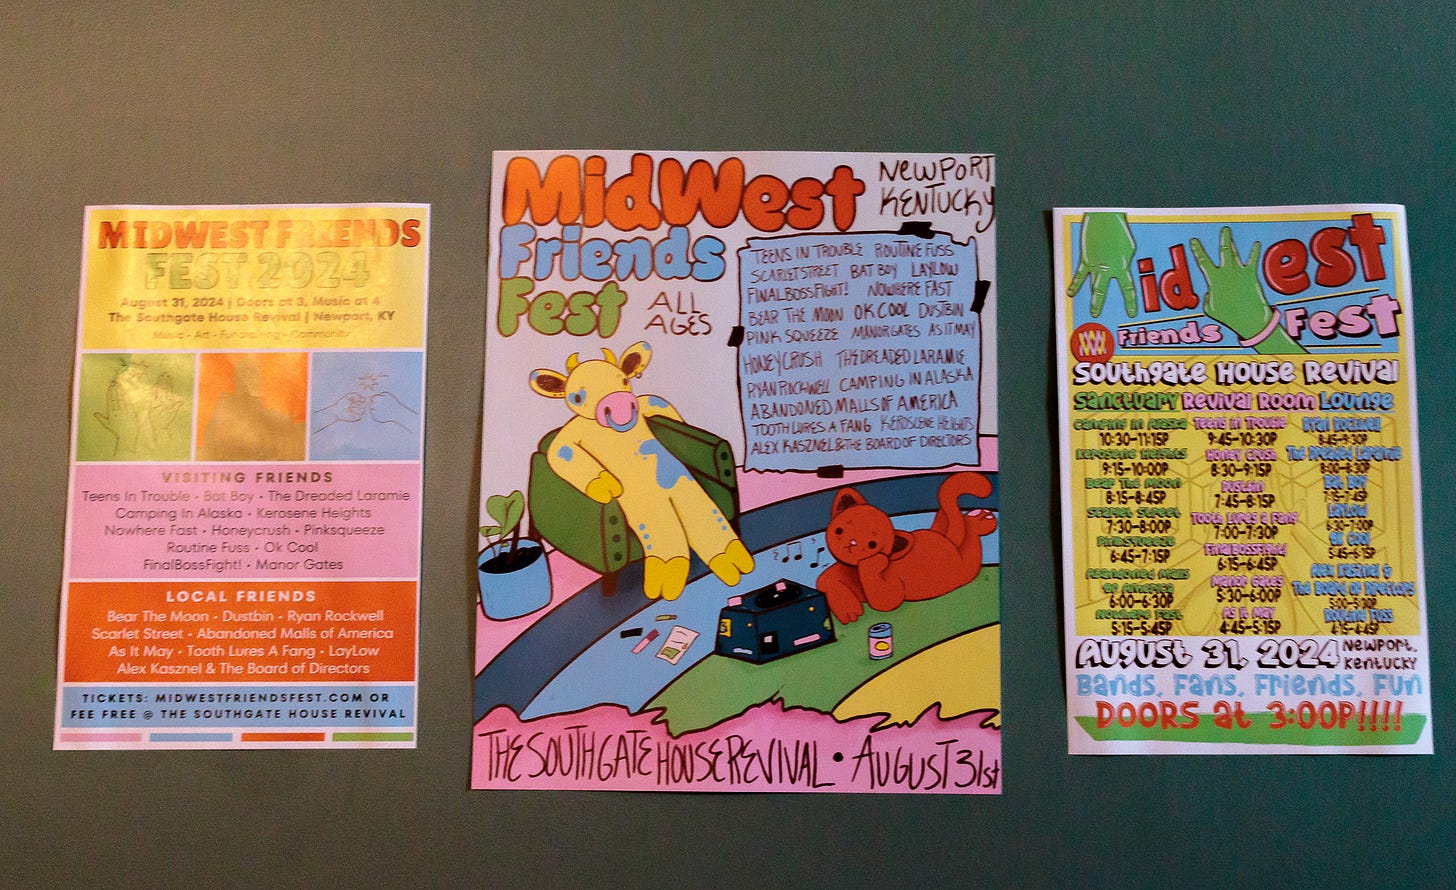 MIDWEST FRIENDS
FEST 2024
August 31, 2024 | Doors at 3, Music at 4
The Southgate House Revival | Newport, KY
Music - Art - Fundraising - Community
VISITING FRIENDS
Teens In Trouble • Bat Boy • The Dreaded Laramie
Camping In Alaska • Kerosene Heights
Nowhere Fast • Honeycrush • Pinksqueeze
Routine Fuss • Ok Cool
FinalBossFight! • Manor Gates
LOCAL FRIENDS
Bear The Moon • Dustbin • Ryan Rockwell
Scarlet Street • Abandoned Malls of America
As It May • Tooth Lures A Fang • LayLow
Alex Kasznel & The Board of Directors
TICKETS: MIDWESTFRIENDSFEST.COM OR
FEE FREE @ THE SOUTHGATE HOUSE REVIVAL
MidWest
Friends
Fest
NEWPORT
KENTUCKY
ALL
AGES
TEENS IN TROUBLE ROUTINE FUSS
SCARLET STREET BAT BOY LAYLOW
FINALBOSSFIGHT! NOWHERE FAST
BEAR THE MOON OK COOL DUSTBIN
PINK SQUEEZE MANOR GATES AS IT MAY
HONEYCRUSH THE DREADED LARAMIE
RYAN ROCKWELL CAMPING IN ALASKA
ABANDONED MALLS OF AMERICA
TOOTH LURES A FANG KEROSCENE HEIGHTS
ALEX KASZNEL & THE BOARD OF DIRECTORS
THE SOUTHGATE HOUSE REVIVAL • AUGUST 31st
MidWest
Friends Fest
Southgate House Revival
Sanctuary Revival Room Lounge
Camping in Alaska Teens in Trouble Ryan Rockwell
10:30-11:15P 9:45-10:30P 8:45-9:30P
Kerosene Heights Honey Crush The Dreaded Laramie
9:15-10:00P 8:30-9:15P 8:00-8:30P
Bear The Moon Dustbin Bat Boy
8:15-8:45P 7:45-8:15P 7:15-7:45P
Scarlet Street Tooth Lures a Fang Laylow
7:30-8:00P 7:00-7:30P 6:30-7:00P
PinkSqueeze FinalBossFight! OK Cool
6:45-7:15P 6:15-6:45P 5:45-6:15P
Abandoned Malls of America Manor Gates Alex Kasznel & The Board of Directors
6:00-6:30P 5:30-6:00P 5:00-5:30P
Nowhere Fast As It May Routine Fuss
5:15-5:45P 4:45-5:15P 4:15-4:45P
August 31, 2024 Newport, Kentucky
Bands, Fans, Friends, Fun
DOORS at 3:00P!!!!